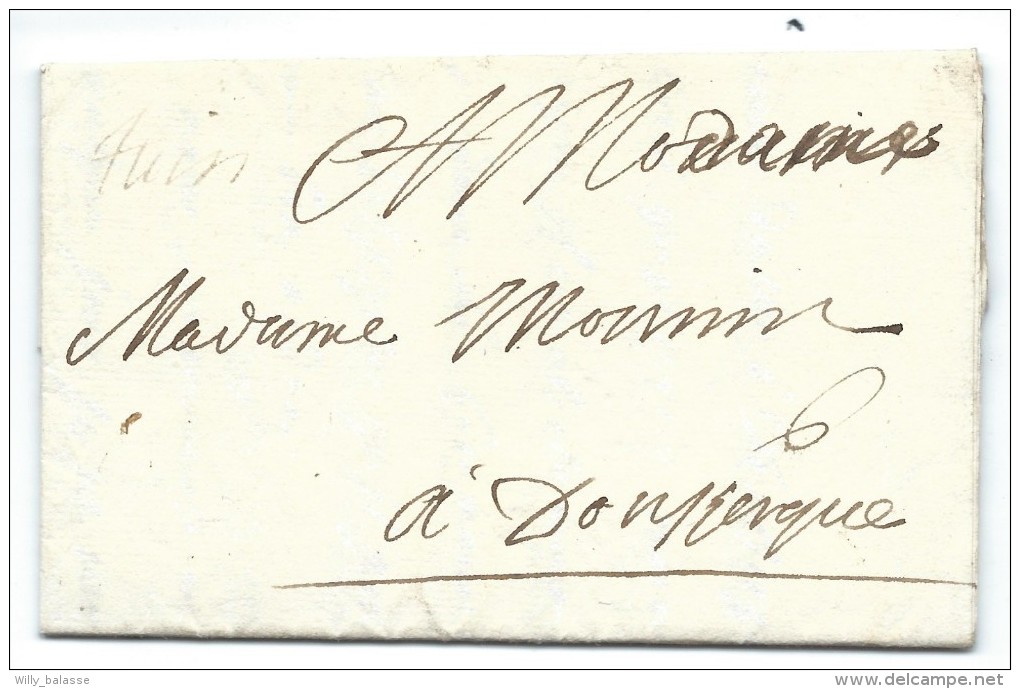 A Madame
Madame Mounin
6
à Donkerque
Willy_balasse
www.delcampe.net